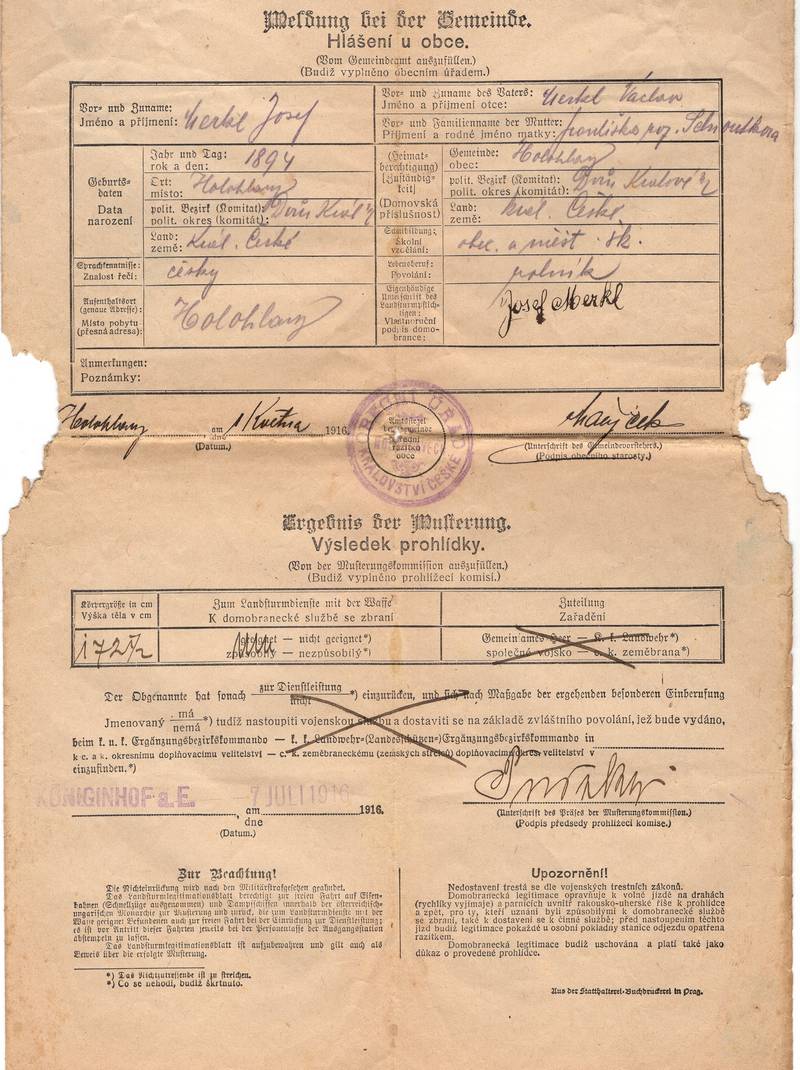 Meldung bei der Gemeinde.
Hlášení u obce.
(Vom Gemeindeamt auszufüllen.)
(Budiž vyplněno obecním úřadem.)
Vor- und Zuname:
Jméno a příjmení: Merkl Josef
Vor- und Zuname des Vaters:
Jméno a příjmení otce: Merkl Václav
Vor- und Familienname der Mutter:
Příjmení a rodné jméno matky: Františka roz.
Geburts-
daten
Data
narození
Jahr und Tag:
rok a den: 1894
Ort:
místo: Holohlavy
polit. Bezirk (Komitat):
polit. okres (komitát): Dvůr Král n/
Land:
země: Král. České
(Heimat-
berechtigung)
(Zuständig-
keit)
(Domovská
příslušnost)
Gemeinde:
obec: Holohlavy
polit. Bezirk (Komitat):
polit. okres (komitát): Dvůr Králové n/
Land:
země: král. České
Sprachkenntnisse:
Znalost řečí: česky
Schulbildung:
Školní
vzdělání: obec. a měšt. šk.
Lebensberuf:
Povolání: rolník
Aufenthaltsort
(genaue Adresse):
Místo pobytu
(přesná adresa): Holohlavy
Eigenhändige
Unterschrift des
Landsturmpflich-
tigen:
Vlastnoruční
podpis domo-
brance: Josef Merkl
Anmerkungen:
Poznámky:
Holohlavy am
dne Května 1916.
(Datum.)
Amtssiegel
der Gemeinde
Úřední
razítko
obce
OBECNÍ ÚŘAD
KRÁLOVSTVÍ ČESKÉ
(Unterschrift des Gemeindevorstehers.)
(Podpis obecního starosty.)
Ergebnis der Musterung.
Výsledek prohlídky.
(Von der Musterungskommission auszufüllen.)
(Budiž vyplněno prohlížecí komisí.)
Körpergröße in cm
Výška těla v cm
Zum Landsturmdienste mit der Waffe
K domobranecké službě se zbraní
Zuteilung
Zařadění
172½
geeignet — nicht geeignet*)
způsobilý — nezpůsobilý*)
Gemeinsames Heer — k. k. Landwehr*)
společné vojsko — c. k. zeměbrana*)
Der Obgenannte hat sonach zur Dienstleistung
nicht *) einzurücken, und sich nach Maßgabe der ergehenden besonderen Einberufung
Jmenovaný má
nemá *) tudíž nastoupiti vojenskou službu a dostaviti se na základě zvláštního povolání, jež bude vydáno,
beim k. u. k. Ergänzungsbezirkskommando — k. k. Landwehr-(Landesschützen-)Ergänzungsbezirkskommando in
k c. a k. okresnímu doplňovacímu velitelství — c. k. zeměbraneckému (zemských střelců) doplňovacímu okres. velitelství v
einzufinden.*)
KÖNIGINHOF a. E. am
dne 7 JULI 1916 1916.
(Datum.)
(Unterschrift des Präses der Musterungskommission.)
(Podpis předsedy prohlížecí komise.)
Zur Beachtung!
Die Nichteinrückung wird nach den Militärstrafgesetzen geahndet.
Das Landsturmlegitimationsblatt berechtigt zur freien Fahrt auf Eisen-
bahnen (Schnellzüge ausgenommen) und Dampfschiffen innerhalb der österreichisch-
ungarischen Monarchie zur Musterung und zurück, die zum Landsturmdienste mit der
Waffe geeignet Befundenen auch zur freien Fahrt bei der Einrückung zur Dienstleistung;
es ist vor Antritt dieser Fahrten jeweils bei der Personenkasse der Ausgangsstation
abstempeln zu lassen.
Das Landsturmlegitimationsblatt ist aufzubewahren und gilt auch als
Beweis über die erfolgte Musterung.
*) Das Nichtzutreffende ist zu streichen.
*) Co se nehodí, budiž škrtnuto.
Upozornění!
Nedostavení trestá se dle vojenských trestních zákonů.
Domobranecká legitimace opravňuje k volné jízdě na drahách
(rychlíky vyjímaje) a parnících uvnitř rakousko-uherské říše k prohlídce
a zpět, pro ty, kteří uznáni byli způsobilými k domobranecké službě
se zbraní, také k dostavení se k činné službě; před nastoupením těchto
jízd budiž legitimace pokaždé u osobní pokladny stanice odjezdu opatřena
razítkem.
Domobranecká legitimace budiž uschována a platí také jako
důkaz o provedené prohlídce.
Aus der Statthalterei-Buchdruckerei in Prag.